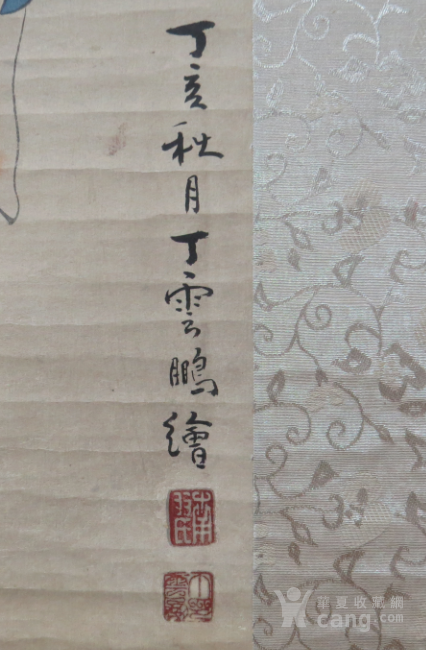 丁亥秋月丁雲鵬繪
華夏收藏網
cang.com